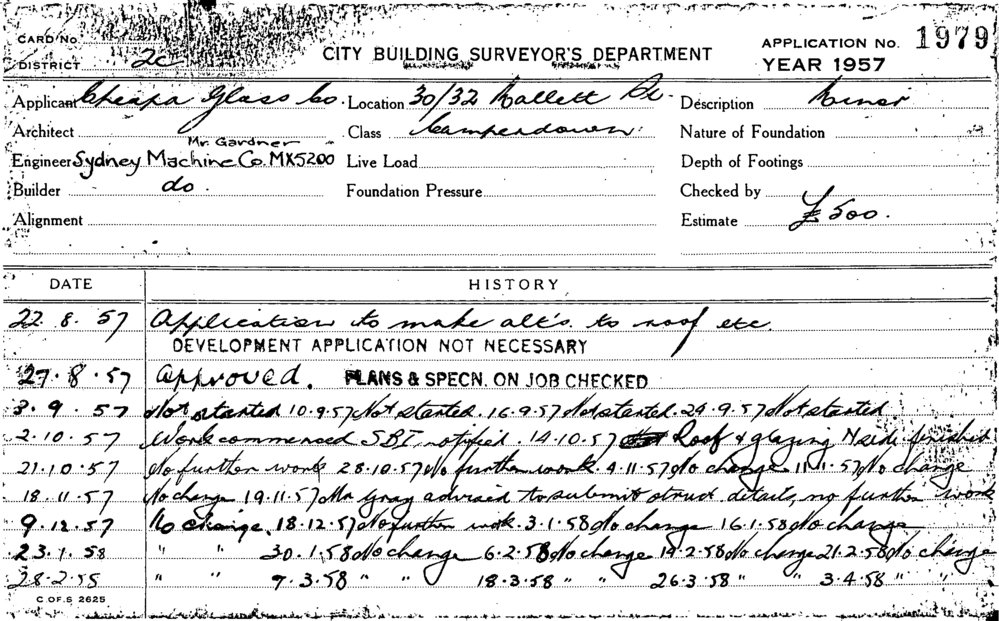 CARD No.
DISTRICT 2c
CITY BUILDING SURVEYOR'S DEPARTMENT
APPLICATION No. 1979
YEAR 1957
Applicant Cheapa Glass Co. Location 30/32 Mallett St. Description Minor
Architect Class Camperdown. Nature of Foundation
Mr. Gardner
Engineer Sydney Machine Co. MX5200 Live Load Depth of Footings
Builder do. Foundation Pressure Checked by
Alignment Estimate £500.
DATE HISTORY
22. 8. 57 Application to make alt's. to roof etc.
DEVELOPMENT APPLICATION NOT NECESSARY
27. 8. 57 Approved. PLANS & SPECN. ON JOB CHECKED
3. 9. 57 Not started 10.9.57 Not started. 16.9.57 Not started. 24.9.57 Not started
2. 10. 57 Work commenced SBI notified. 14.10.57 Roof & glazing N side finished
21. 10. 57 No further work 28.10.57 No further work 4.11.57 No change 11.11.57 No change
18. 11. 57 No change 19.11.57 Mr Gray advised to submit struct details, no further work
9. 12. 57 No change. 18.12.57 No further work 3.1.58 No change 16.1.58 No change
23. 1. 58 " " 30.1.58 No change 6.2.58 No change 14.2.58 No change 21.2.58 No change
28.2.58 " " 9.3.58 " " 18.3.58 " " 26.3.58 " " 3.4.58 " "
C. OF. S 2625